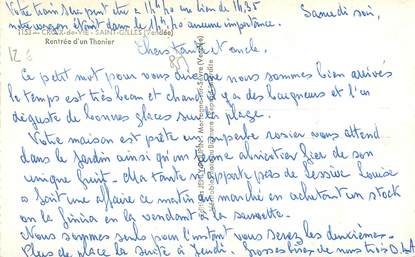 Votre train peut être à 14h20 au lieu de 14.35
notre wagon étant dans le 14h,20 aucune importance.
Samedi soir,
1153 - CROIX-de-VIE - SAINT-GILLES (Vendée)
Rentrée d'un Thonier
Chers tante et oncle,
Ce petit mot pour vous dire que nous sommes bien arrivés
le temps est très beau et chaud, il y a des baigneurs et l'on
déguste de bonnes glaces sur la plage.
Votre maison est prête un superbe rosier vous attend
dans le jardin ainsi qu'un abricotier fier de son
unique fruit. Ma tante n'apporte pas de lessive Louise
a fait une affaire ce matin au marché en achetant un stock
on le finira en la vendant à la sauvette.
Nous sommes seuls pour l'instant vous serez les deuxièmes.
Plus de place la suite à Jeudi. Grosses bises de nous trois